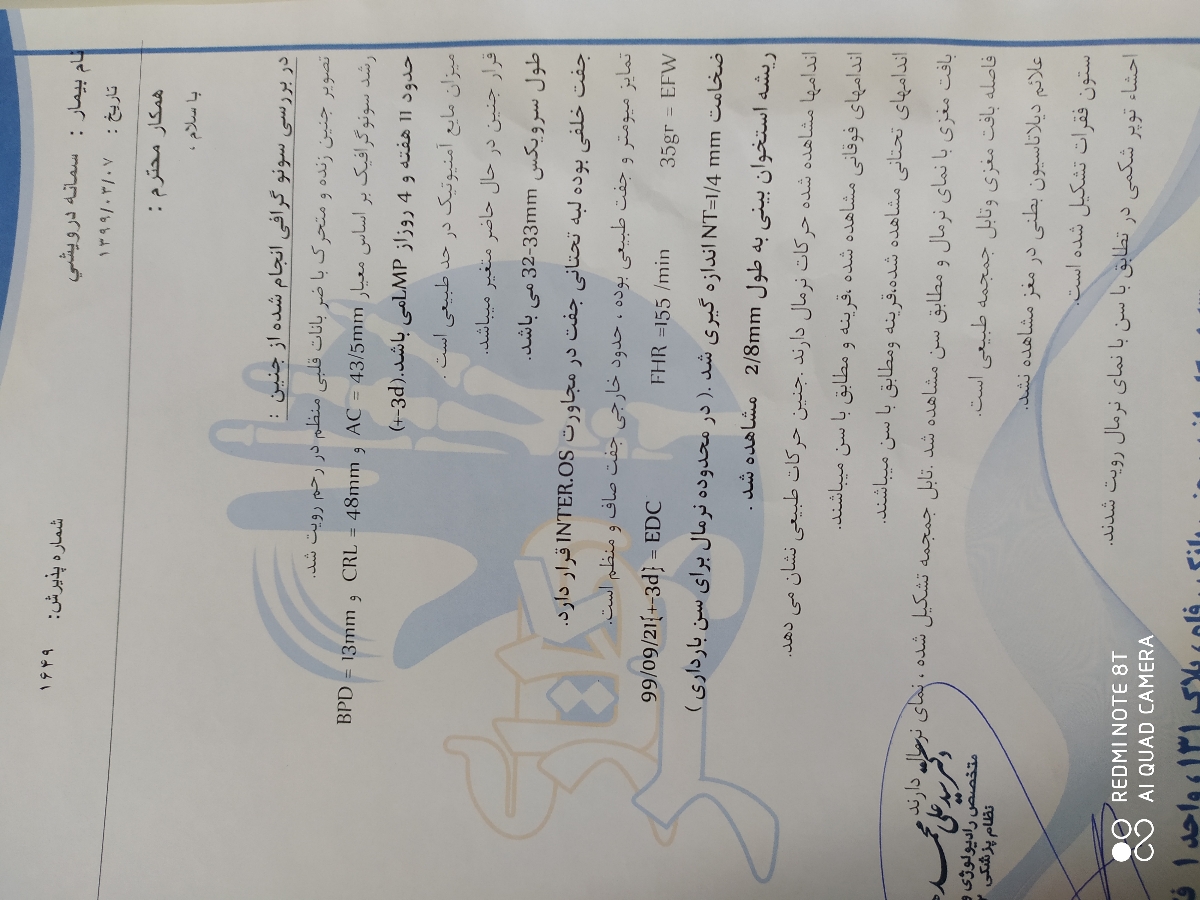 نام بیمار : سمانه درویشي
شماره پذیرش: ۱۶۴۹
تاریخ : ۱۳۹۹/۰۳/۰۷
همکار محترم :
با سلام ،
در بررسی سونو گرافی انجام شده از جنین :
تصویر جنین زنده و متحرک با ضربانات قلبی منظم در رحم رویت شد.
رشد سونوگرافیک بر اساس معیار BPD = 13mm و CRL = 48mm و AC = 43/5mm
حدود 11 هفته و 4 روزاز LMPمی باشد.(+-3d)
میزان مایع آمنیوتیک در حد طبیعی است .
قرار جنین در حال حاضر متغیر میباشد.
طول سرویکس 32-33mm می باشد.
جفت خلفی بوده لبه تحتانی جفت در مجاورت INTER.OS قرار دارد.
تمایز میومتر و جفت طبیعی بوده ، حدود خارجی جفت صاف و منظم است.
99/09/21{+-3d} = EDC FHR =155 /min 35gr = EFW
ضخامت NT=1/4 mm اندازه گیری شد .( در محدوده نرمال برای سن بارداری )
ریشه استخوان بینی به طول 2/8mm مشاهده شد .
اندامها مشاهده شده حرکات نرمال دارند .جنین حرکات طبیعی نشان می دهد.
اندامهای فوقانی مشاهده شده ،قرینه و مطابق با سن میباشند.
اندامهای تحتانی مشاهده شده،قرینه ومطابق با سن میباشند.
بافت مغزی با نمای نرمال و مطابق سن مشاهده شد .تابل جمجمه تشکیل شده ، نمای نرمال دارند
فاصله بافت مغزی وتابل جمجمه طبیعی است.
علائم دیلاتاسیون بطنی در مغز مشاهده نشد.
ستون فقرات تشکیل شده است.
احشاء توپر شکمی در تطابق با سن با نمای نرمال رویت شدند.
دکتر سید علی
متخصص رادیولوژی و
نظام پزشکی
پلاک ۱۳۱، واحد ۱
REDMI NOTE 8T
AI QUAD CAMERA